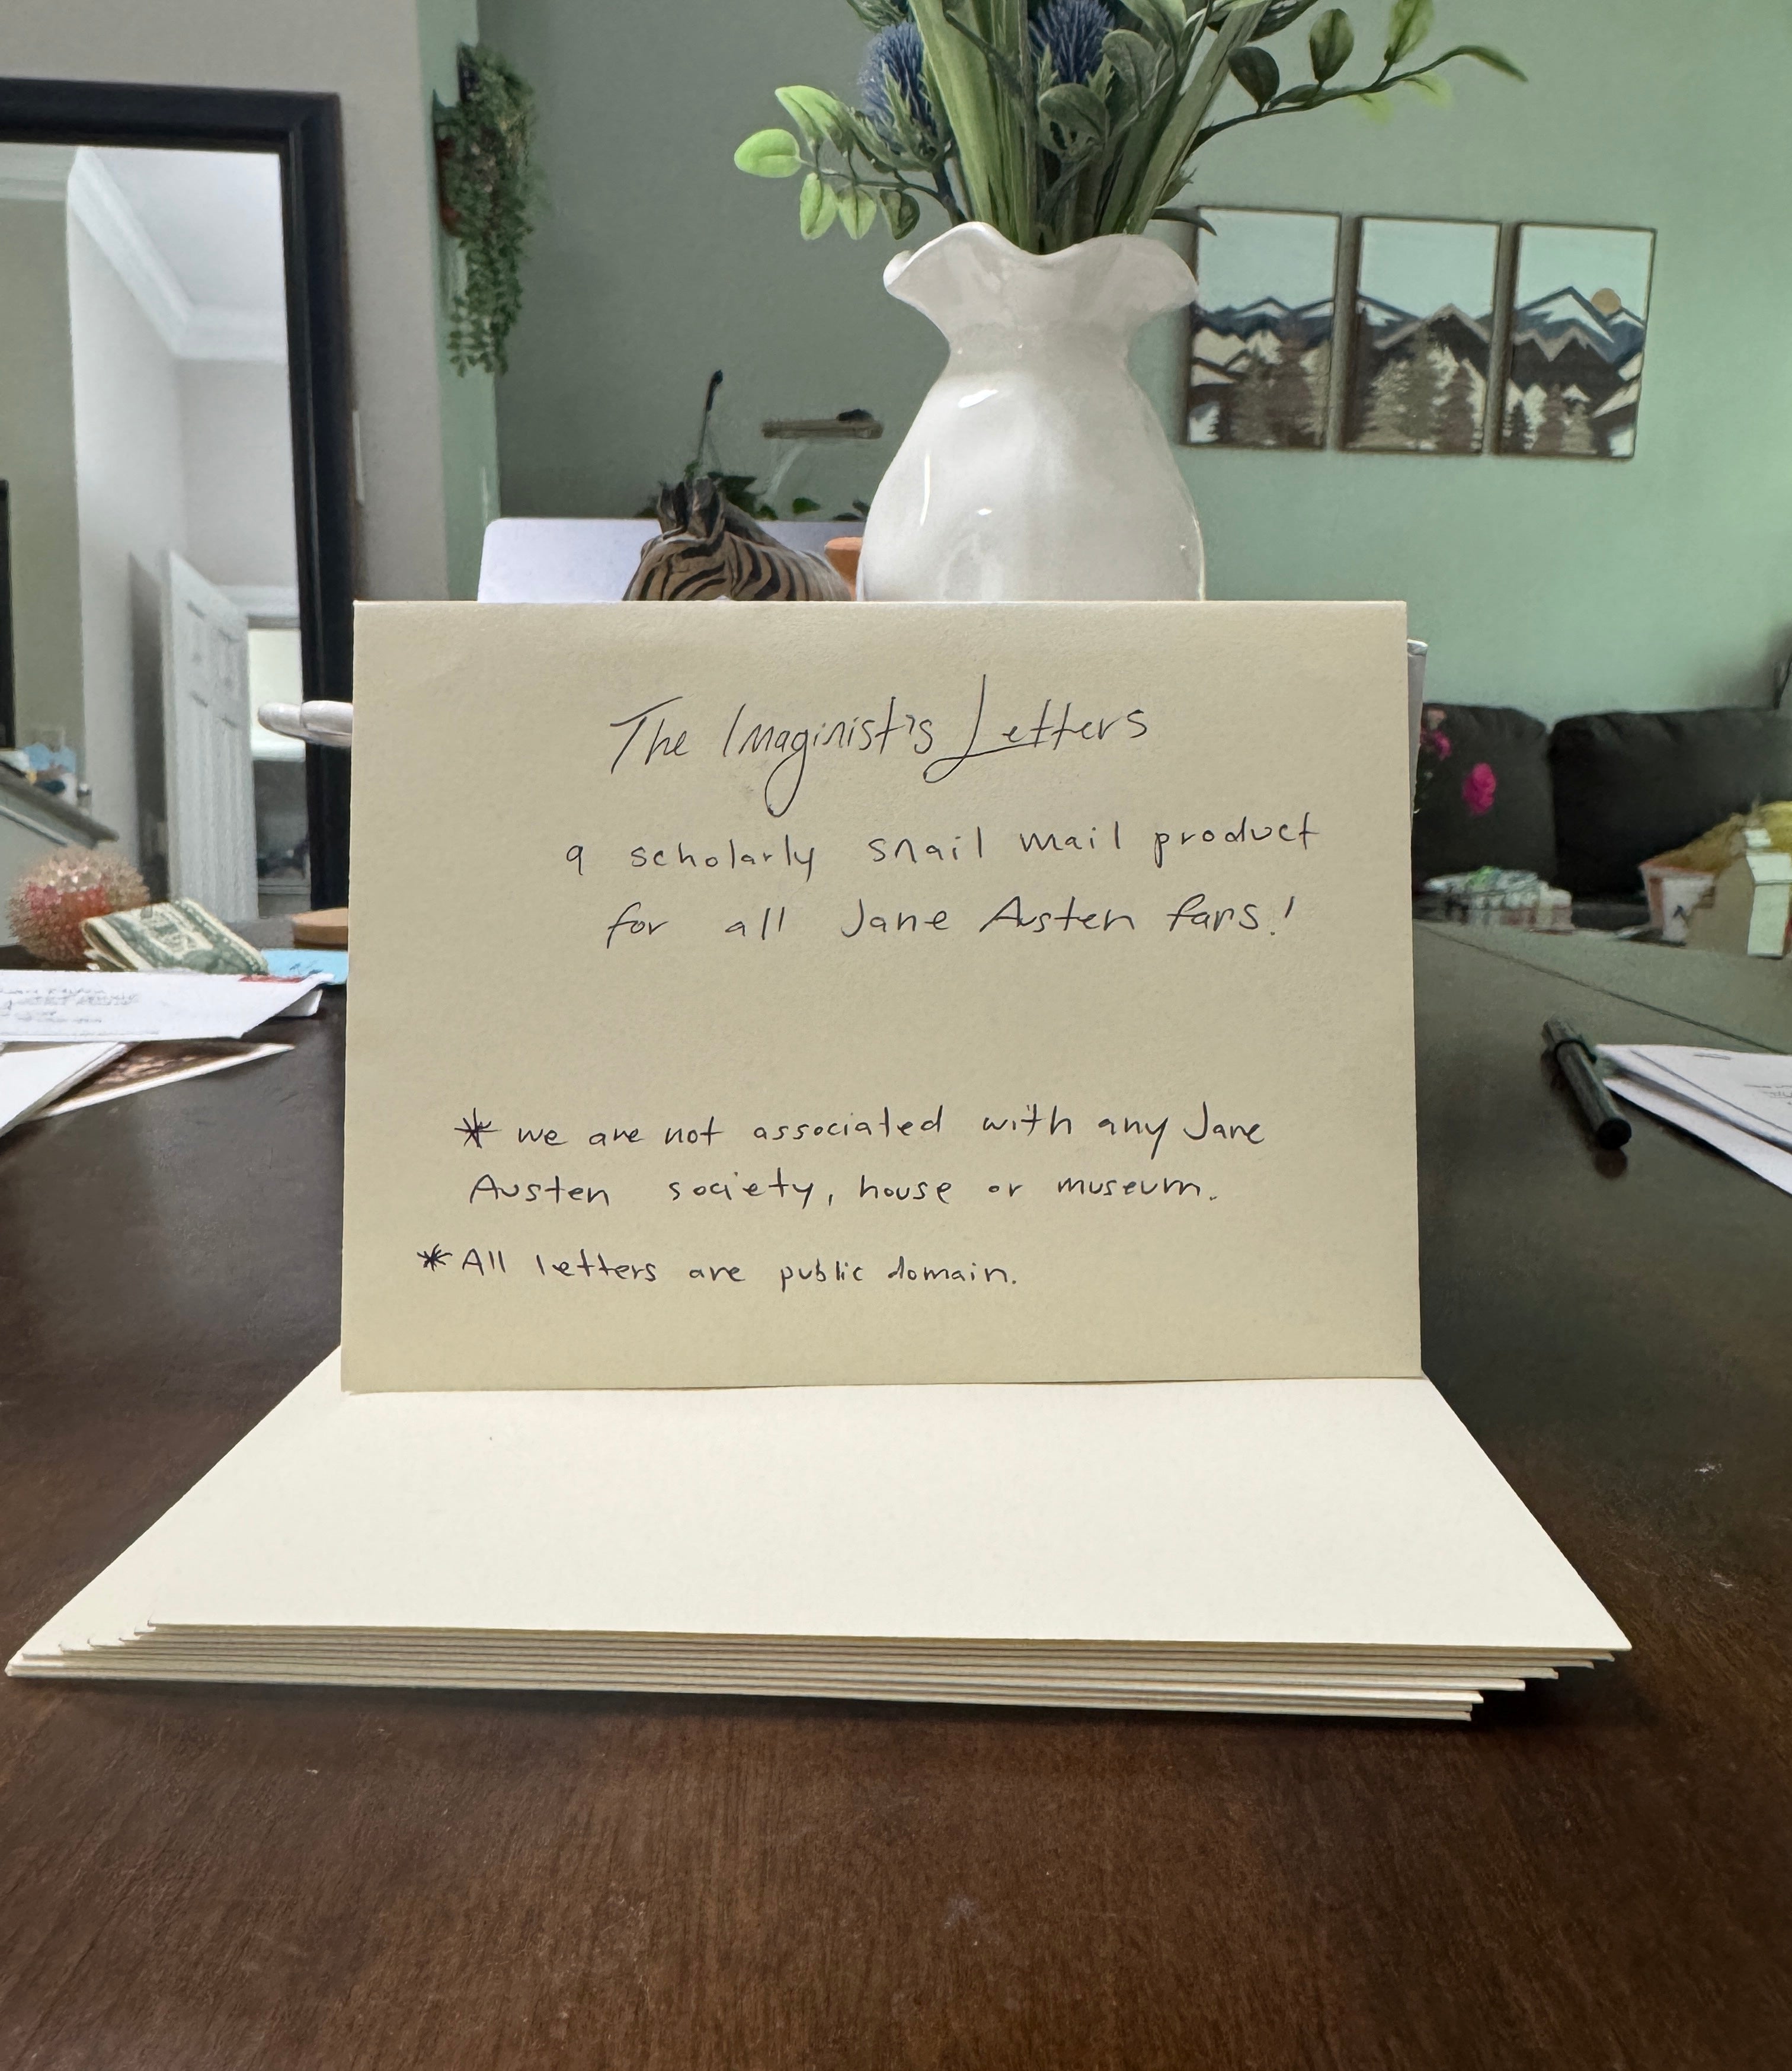 The Imaginist's Letters
a scholarly snail mail product
for all Jane Austen fans!
* we are not associated with any Jane
Austen society, house or museum.
* All letters are public domain.